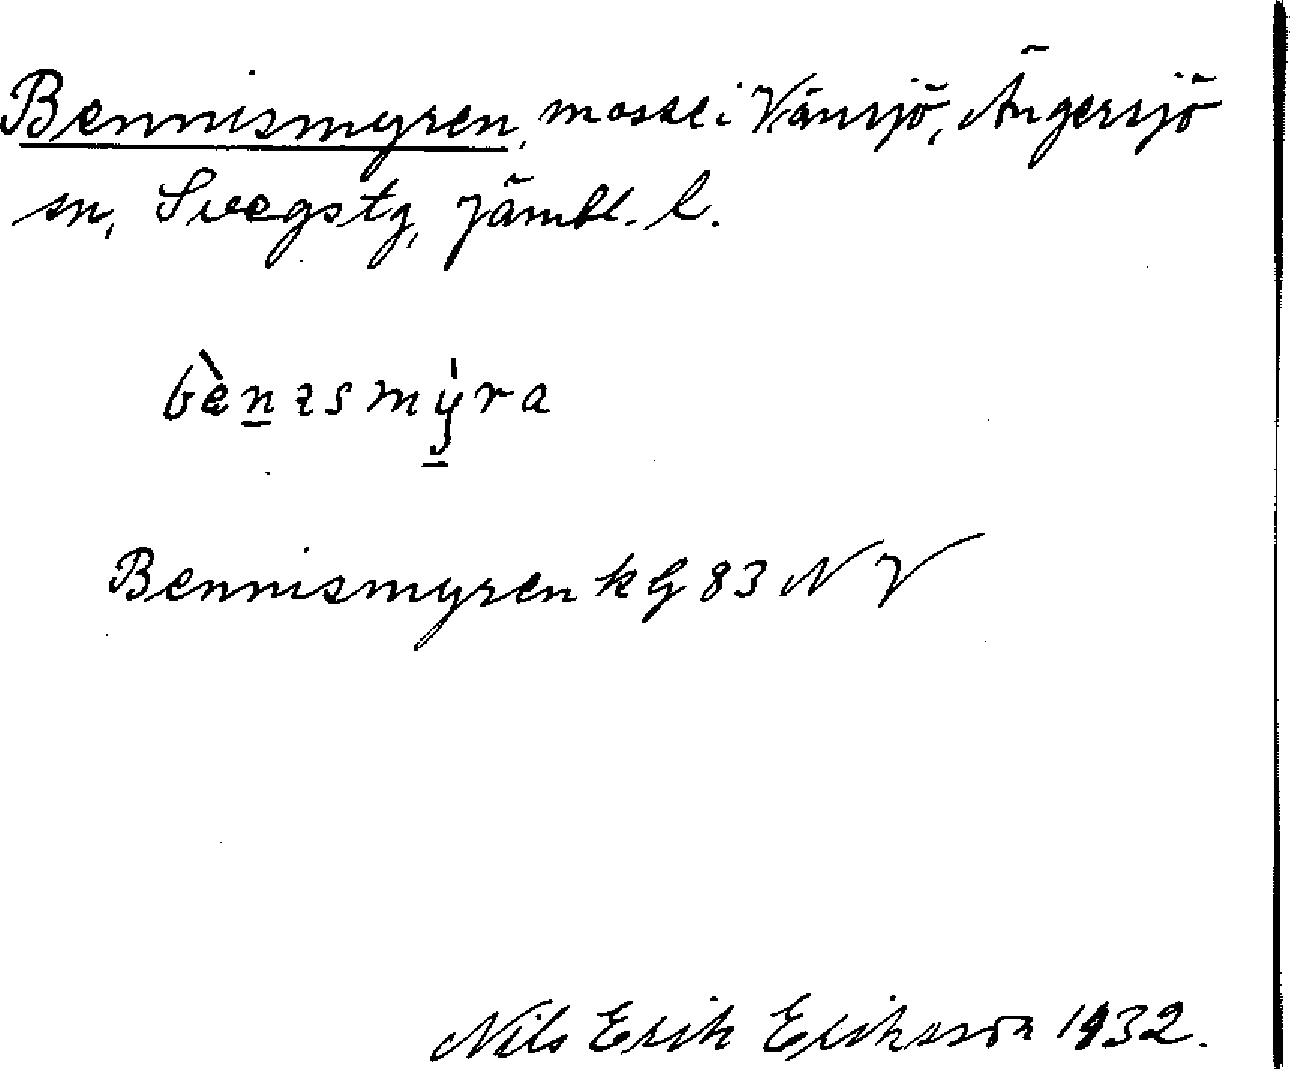 Bennismyren, mosse i Vänsjö, Ängersjö
sn, Svegstg, Jämtl. l.
bènɪsmy̍ra
Bennismyren kG 83 NV
Nils Erik Eriksson 1932.